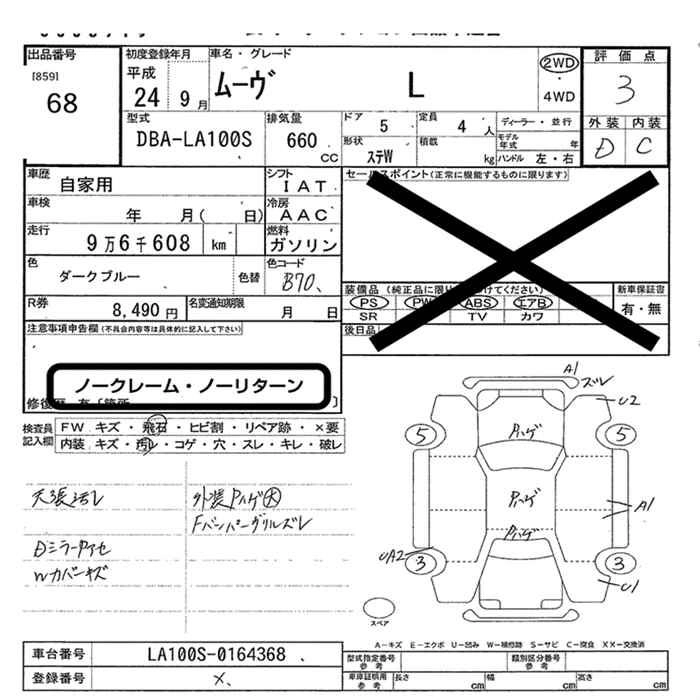 出品番号 初度登録年月 車名・グレード 2WD 評価点
[859] 平成 ムーヴ L ・ 3
68 24 9月 4WD
型式 排気量 ドア 5 定員 4人 ディーラー・並行 外装 内装
DBA-LA100S 660 CC 形状 ステW 積載 kg モデル年式 年 D C
ハンドル 左・右
車歴 自家用 シフト IAT セールスポイント(正常に機能するものに限ります)
車検 年 月( 日) 冷房 AAC
走行 9万6千608 km 燃料 ガソリン
色 ダークブルー 色替 色コード B70、 装備品(純正品に限り けてください) 新車保証書
PS PW ABS エアB 有・無
R券 8,490円 名変通知期限 月 日 SR TV カワ
注意事項申告欄(不具合内容等は具体的に記入して下さい) 後日品
ノークレーム・ノーリターン
修復歴 有[箇所 ]
検査員記入欄 FW キズ・飛石・ヒビ割・リペア跡・×要
内装 キズ・汚レ・コゲ・穴・スレ・キレ・破レ
A1 ズレ
U2
5 Pハゲ 5
天張汚レ 外装Pハゲ大 Pハゲ A1
Fバンパーグリルズレ
Pハゲ
Dミラーアセ UA2 3 3
Wカバーキズ U1
スペア
A-キズ E-エクボ U-凹み W-補修跡 S-サビ C-腐食 XX-交換済
車台番号 LA100S-0164368 、 型式指定番号 参考 類別区分番号 参考
登録番号 ×、 車庫証明用 参考 長さ cm 幅 cm 高さ cm